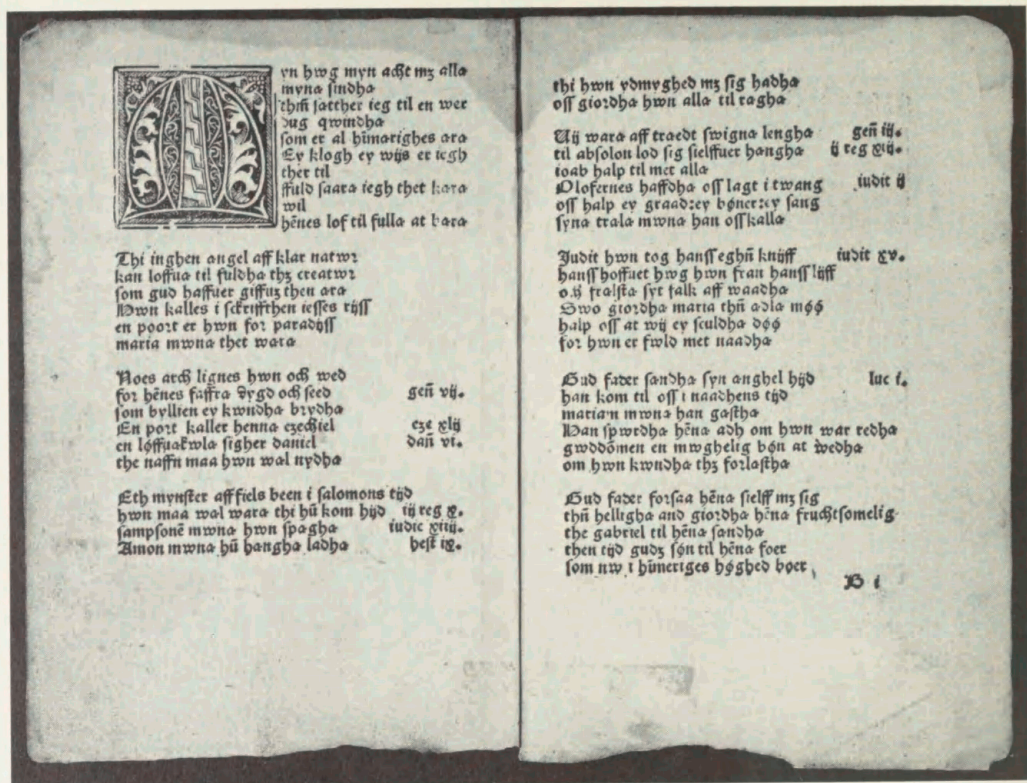 Myn hwg myn acht mz alla
myna sindha
thñ sætther ieg til en wer
dug qwindha
som er al hīmarighes æra
Ey klogh ey wijs er iegh
ther til
ffuld saara iegh thet kæra
wil
hēnes lof til fulla at bæra
Thi inghen angel aff klar natwr
kan loffua til fuldha thz creatwr
som gud haffuer giffuz then æra
Hwn kalles i sckriffthen iesses rijss
en poort er hwn for paradijss
maria mwna thet wæra
Noes arch lignes hwn och wed
for hēnes faffra dygd och seed gen̄ vij.
som byllien ey kwndha brydha
En port kaller henna ezechiel eze xlij
en løffuakwla sigher daniel dan̄ vi.
the naffn maa hwn wal nydha
Eth mynster aff fiels been i salomons tijd
hwn maa wal wara thi hū kom hijd iij reg x.
sampsonē mwna hwn spagha iudic xiiij.
Amon mwna hū hangha ladha hest ix.
thi hwn ydmyghed mz sig hadha
oss giordha hwn alla til ragha
Uij wara aff traedt swigna lengha gen̄ iij.
til absolon lod sig sielffuer hangha ij reg xij.
ioab halp til met alla
Olofernes haffdha oss lagt i twang iudit ij
off halp ey graad:ey bøner:ey sang
syna trala mwna han oss kalla
Judit hwn tog hanss eghn̄ knijff iudit xv.
hanss hoffuet hwg hwn fran hanss lijff
oc frælsta syt falk aff waadha
Swo giordha maria thn̄ ædla møø
halp oss at wij ey sculdha døø
for hwn er fwld met naadha
Gud fader sandha syn anghel hijd luc i.
han kom til oss i naadhens tijd
mariam mwna han gæstha
Han spwrdha hēna adh om hwn war redha
gwddōmen en mwghelig bøn at bedha
om hwn kwndha thz forlæstha
Gud fader forsaa hēna sielff mz sig
thn̄ helligha and giordha hēna fruchtsomelig
the gabriel til hēna sandha
then tijd gudz søn til hēna foer
som nw i hīmeriges høghed boer
B i